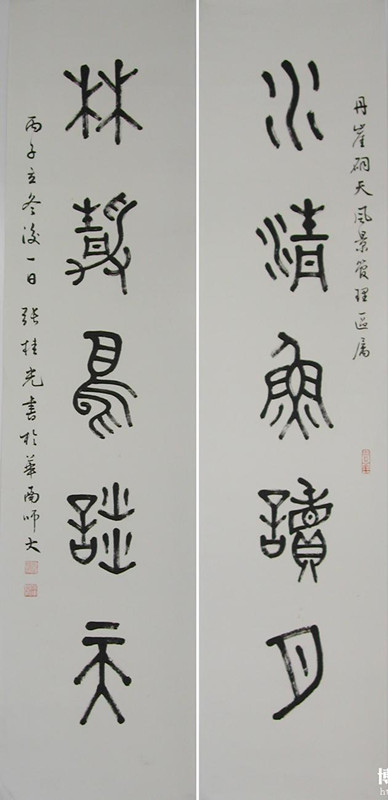 丹崖硐天風景管理區屬
水清魚讀月
林靜鳥談天
丙子立冬後一日張桂光書於華南師大